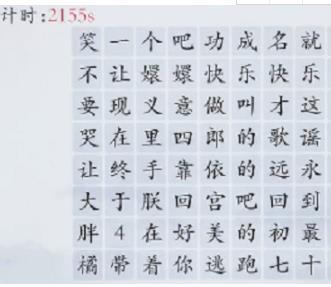 计时:2155s
笑一个吧功成名就
不让嬛嬛快乐快乐
要现义意做叫才这
哭在里四郎的歌谣
让终手靠依的远永
大于朕回宫吧回到
胖4在好美的初最
橘带着你逃跑七十